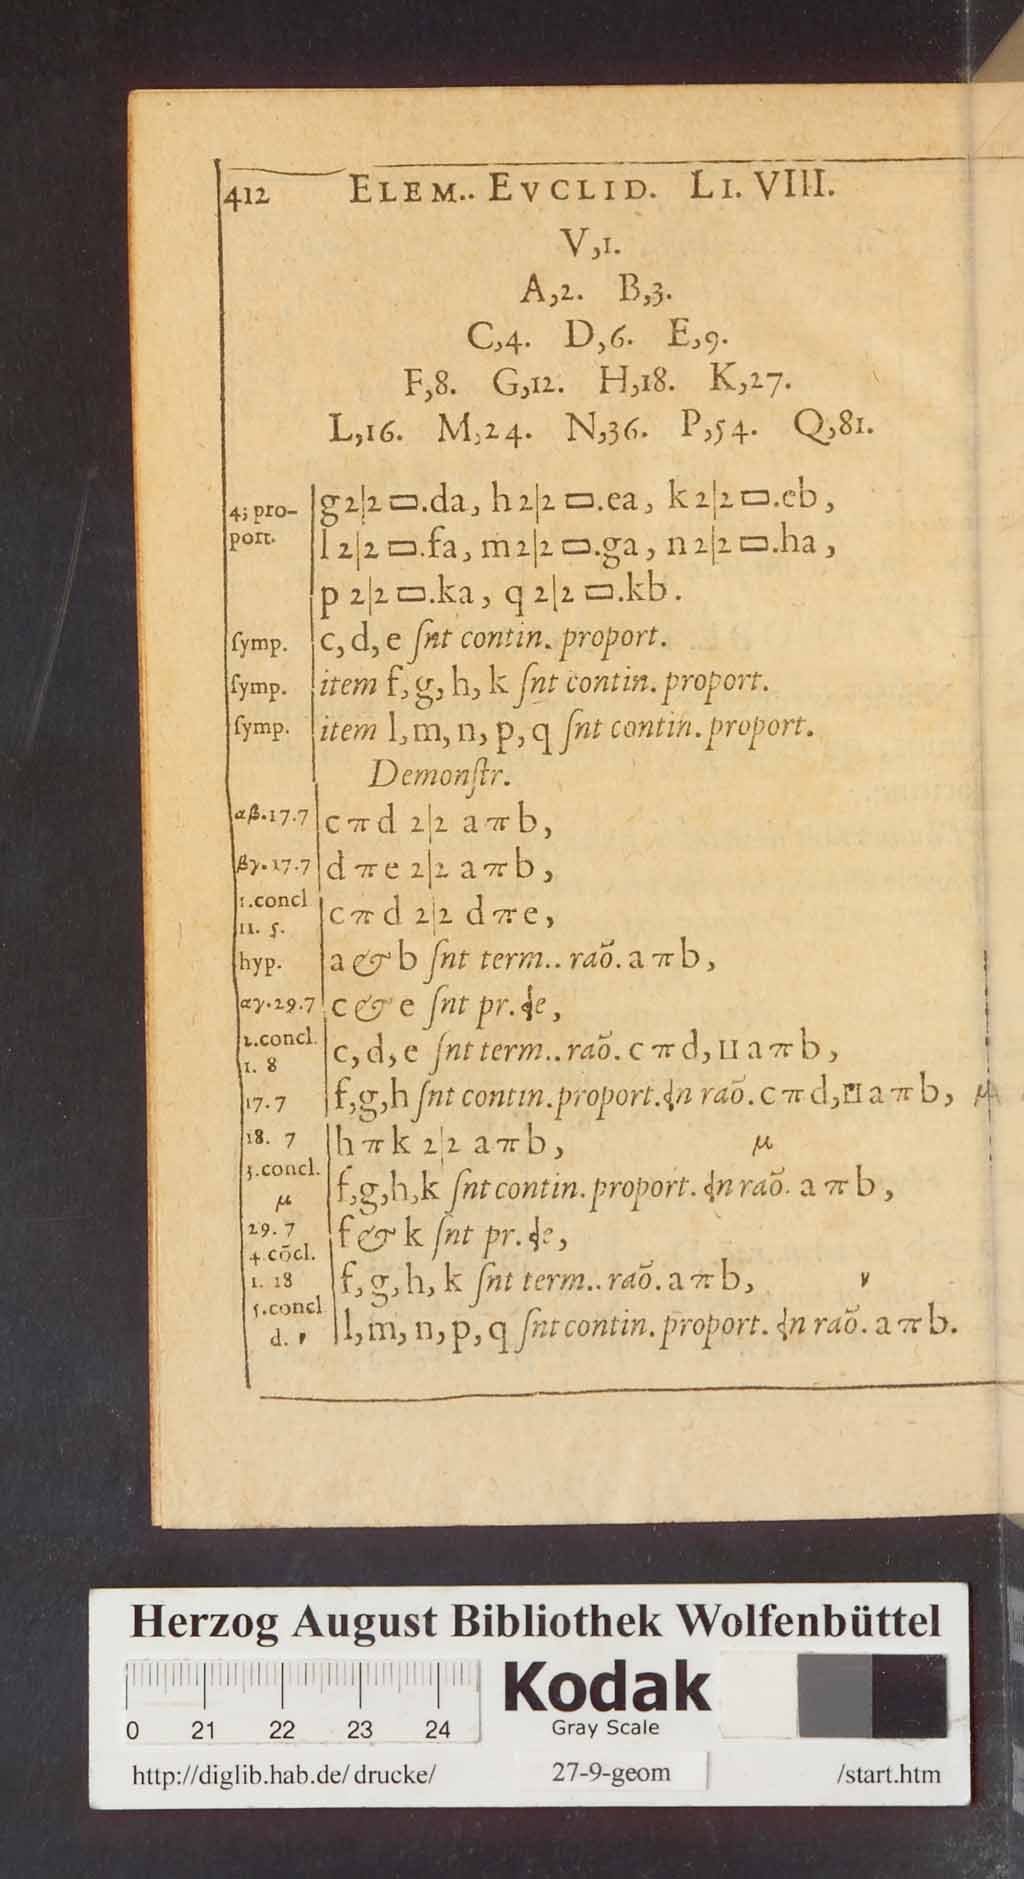 412 ELEM.. EVCLID. LI. VIII.
V,1.
A,2. B,3.
C,4. D,6. E,9.
F,8. G,12. H,18. K,27.
L,16. M,24. N,36. P,54. Q,81.
4; pro-
port.
g 2|2 ▭.da, h 2|2 ▭.ea, k 2|2 ▭.eb,
l 2|2 ▭.fa, m 2|2 ▭.ga, n 2|2 ▭.ha,
p 2|2 ▭.ka, q 2|2 ▭.kb.
ſymp. c, d, e ſnt contin. proport.
ſymp. item f, g, h, k ſnt contin. proport.
ſymp. item l, m, n, p, q ſnt contin. proport.
Demonſtr.
αβ.17.7 c π d 2|2 a π b,
βγ.17.7 d π e 2|2 a π b,
1.concl
11. 5.
c π d 2|2 d π e,
hyp. a & b ſnt term.. raõ. a π b,
αγ.29.7 c & e ſnt pr. e,
2.concl.
1. 8
c, d, e ſnt term.. raõ. c π d, ⊔ a π b,
17.7 f, g, h ſnt contin. proport. n raõ. c π d, ⊔ a π b, μ
18. 7 h π k 2|2 a π b, μ
3.concl.
μ
f, g, h, k ſnt contin. proport. n raõ. a π b,
29. 7 f & k ſnt pr. e,
4.cõcl.
1. 18
f, g, h, k ſnt term.. raõ. a π b, ν
5.concl
d. ν
l, m, n, p, q ſnt contin. proport. n raõ. a π b.
Herzog August Bibliothek Wolfenbüttel
0 21 22 23 24
Kodak
Gray Scale
http://diglib.hab.de/drucke/ 27-9-geom /start.htm